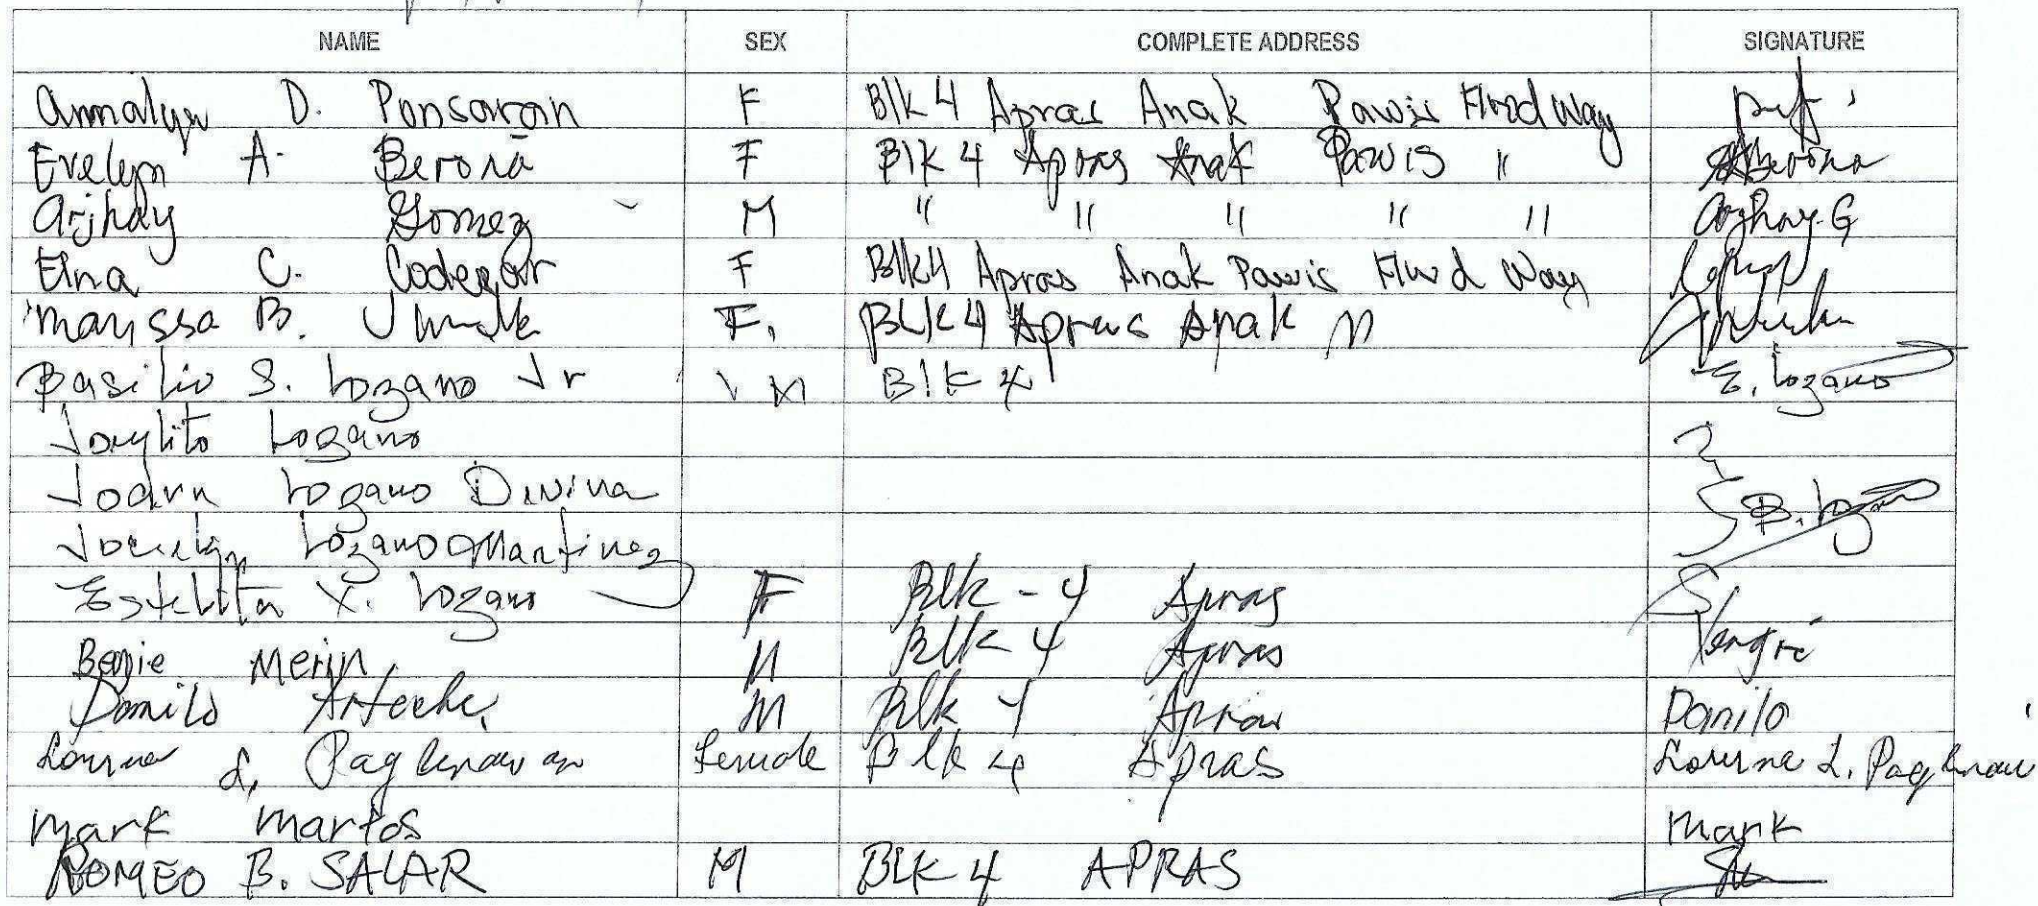 NAME SEX COMPLETE ADDRESS SIGNATURE
Annalyn D. Ponsaran F Blk 4 Apras Anak Pawis Flood Way
Evelyn A. Berona F Blk 4 Apras Anak Pawis " ABerona
Arjhay Gomez M " " " " " Arjhay G
Elna C. Codenar F Blk 4 Apras Anak Pawis Flood Way
Maryssa B. F. BLK 4 Apras Anak
Basilio S. Lozano Jr M Blk 4 E. Lozano
Joeylito Lozano
Joann Lozano Divina B. Lozano
Jocelyn Lozano Martinez
Estelita Y. Lozano F Blk - 4 Apras
Benjie Merin M Blk - 4 Apras
Danilo Arteche M Blk 4 Apras Danilo
Lourna L. Paglinawan Female Blk 4 Apras Lourna L. Paglinawan
Mark Martos Mark
ROMEO B. SALAR M BLK 4 APRAS